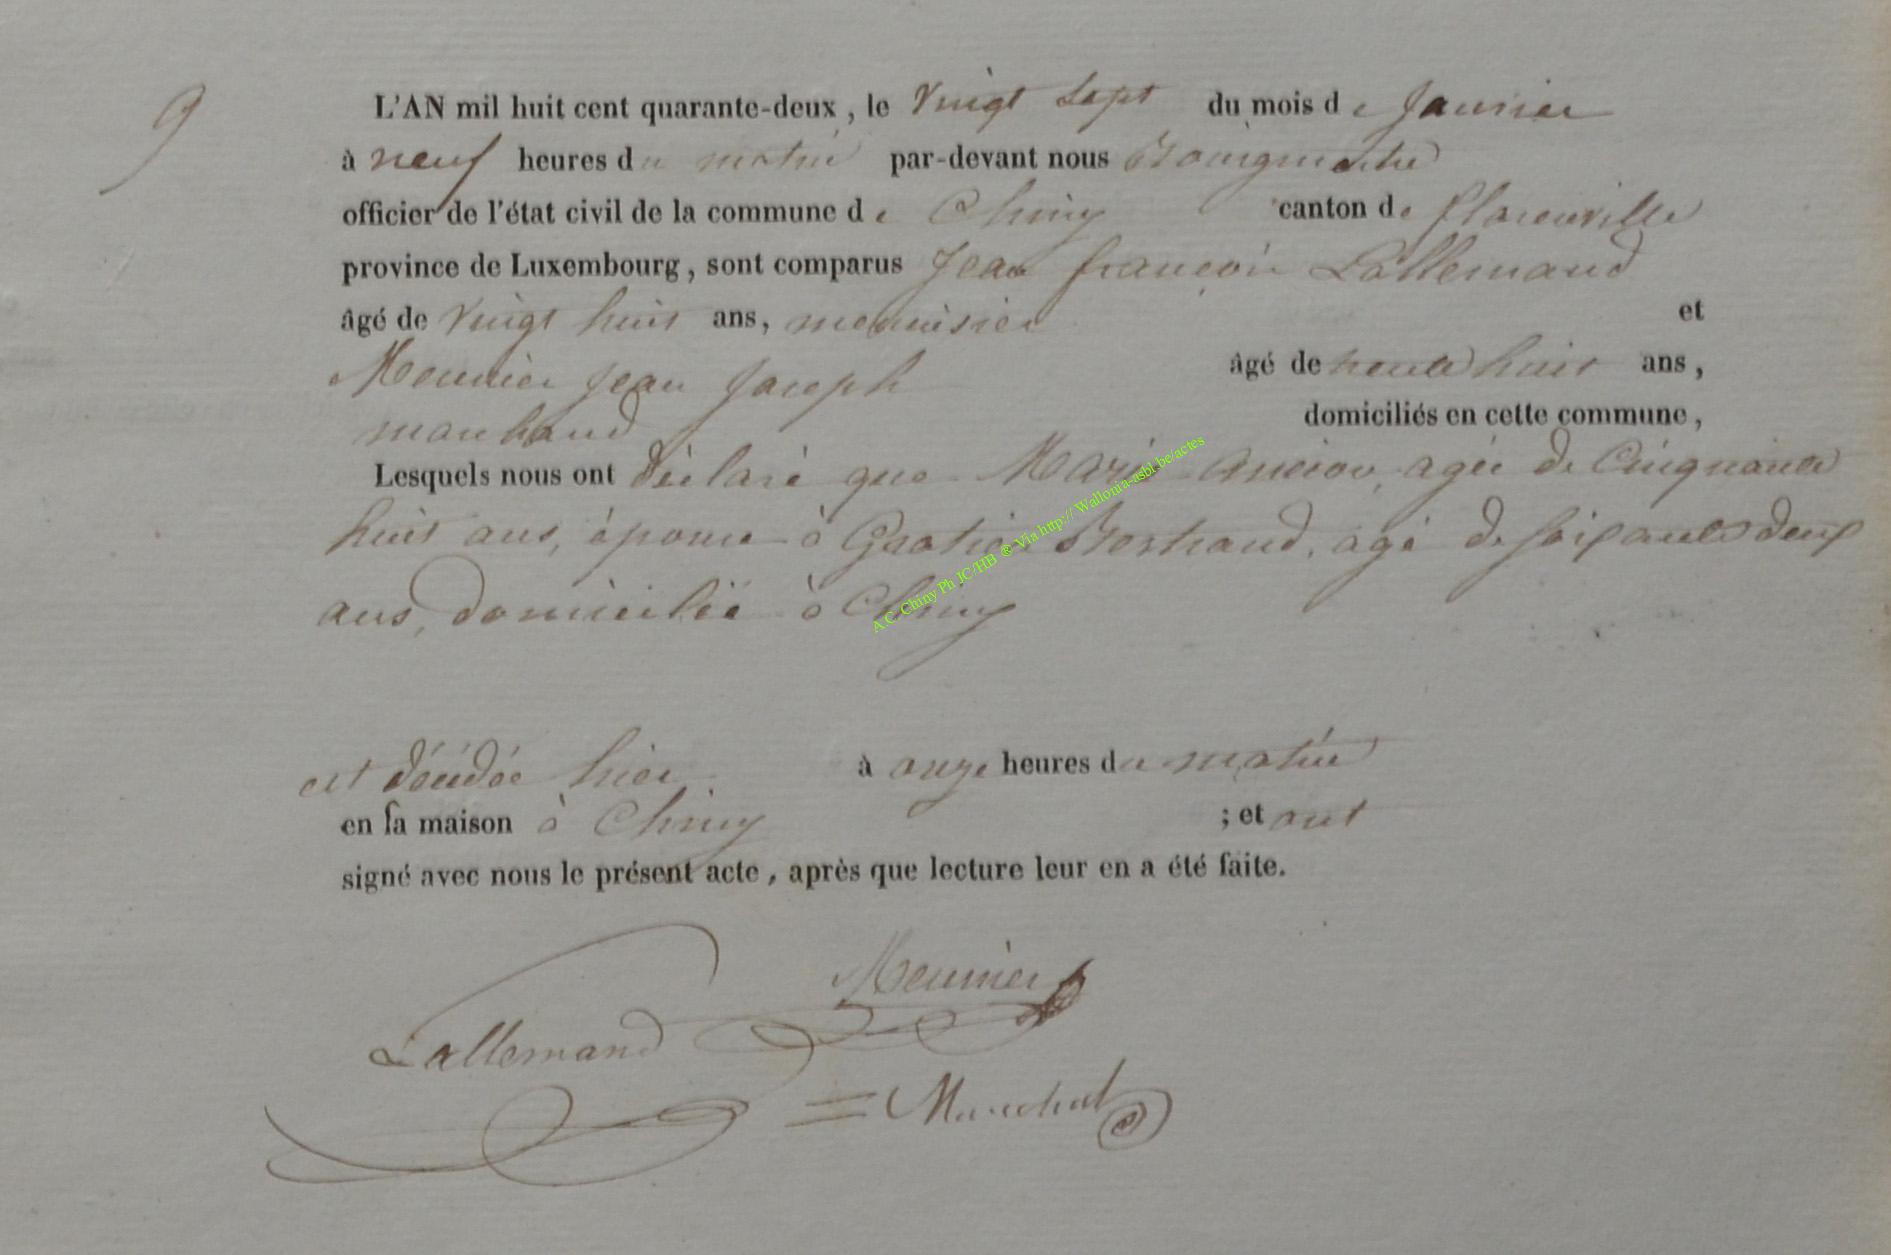 9
L'AN mil huit cent quarante-deux, le Vingt Sept du mois de Janvier
à neuf heures du matin par-devant nous Bourgmestre
officier de l'état civil de la commune de Chiny canton de florenville
province de Luxembourg, sont comparus Jean françois Lallemand
âgé de Vingt huit ans, menuisier et
Meunier Jean Joseph âgé de trente huit ans,
marchand domiciliés en cette commune,
Lesquels nous ont déclaré que Marie agée de Cinquante
huit ans, épouse à Gratien Bertrand, agé de soixante deux
ans, domicilié à Chiny
est décédée hier à onze heures du matin
en sa maison à Chiny ; et ont
signé avec nous le présent acte, après que lecture leur en a été faite.
Meunier
Lallemand
Marechal
A.C. Chiny Ph JC/HB ® Via http:// Wallonia-asbl.be/actes